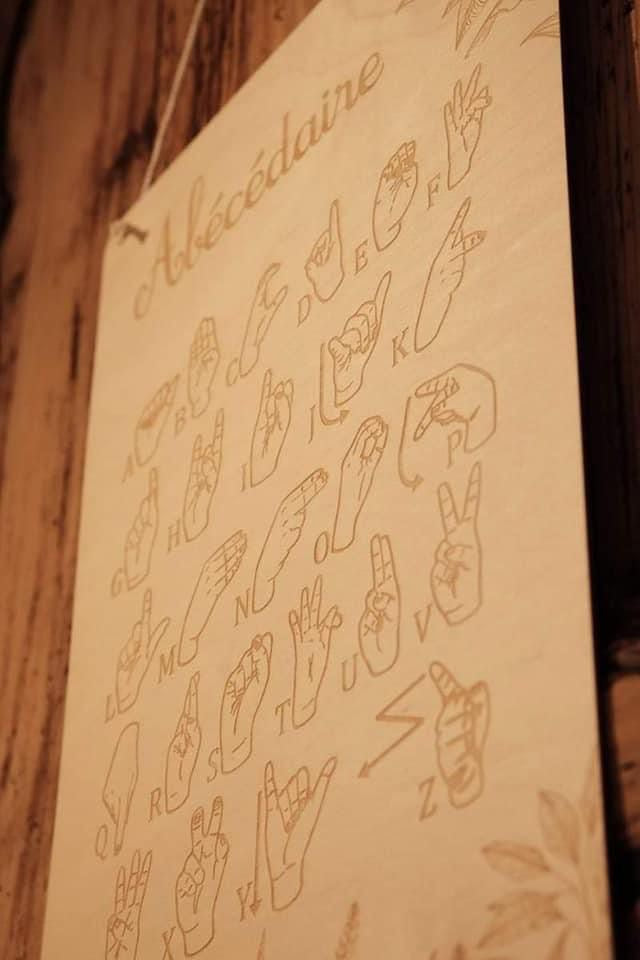 Abécédaire
A B C D E F
G H I J K
L M N O P
Q R S T U V
X Y Z